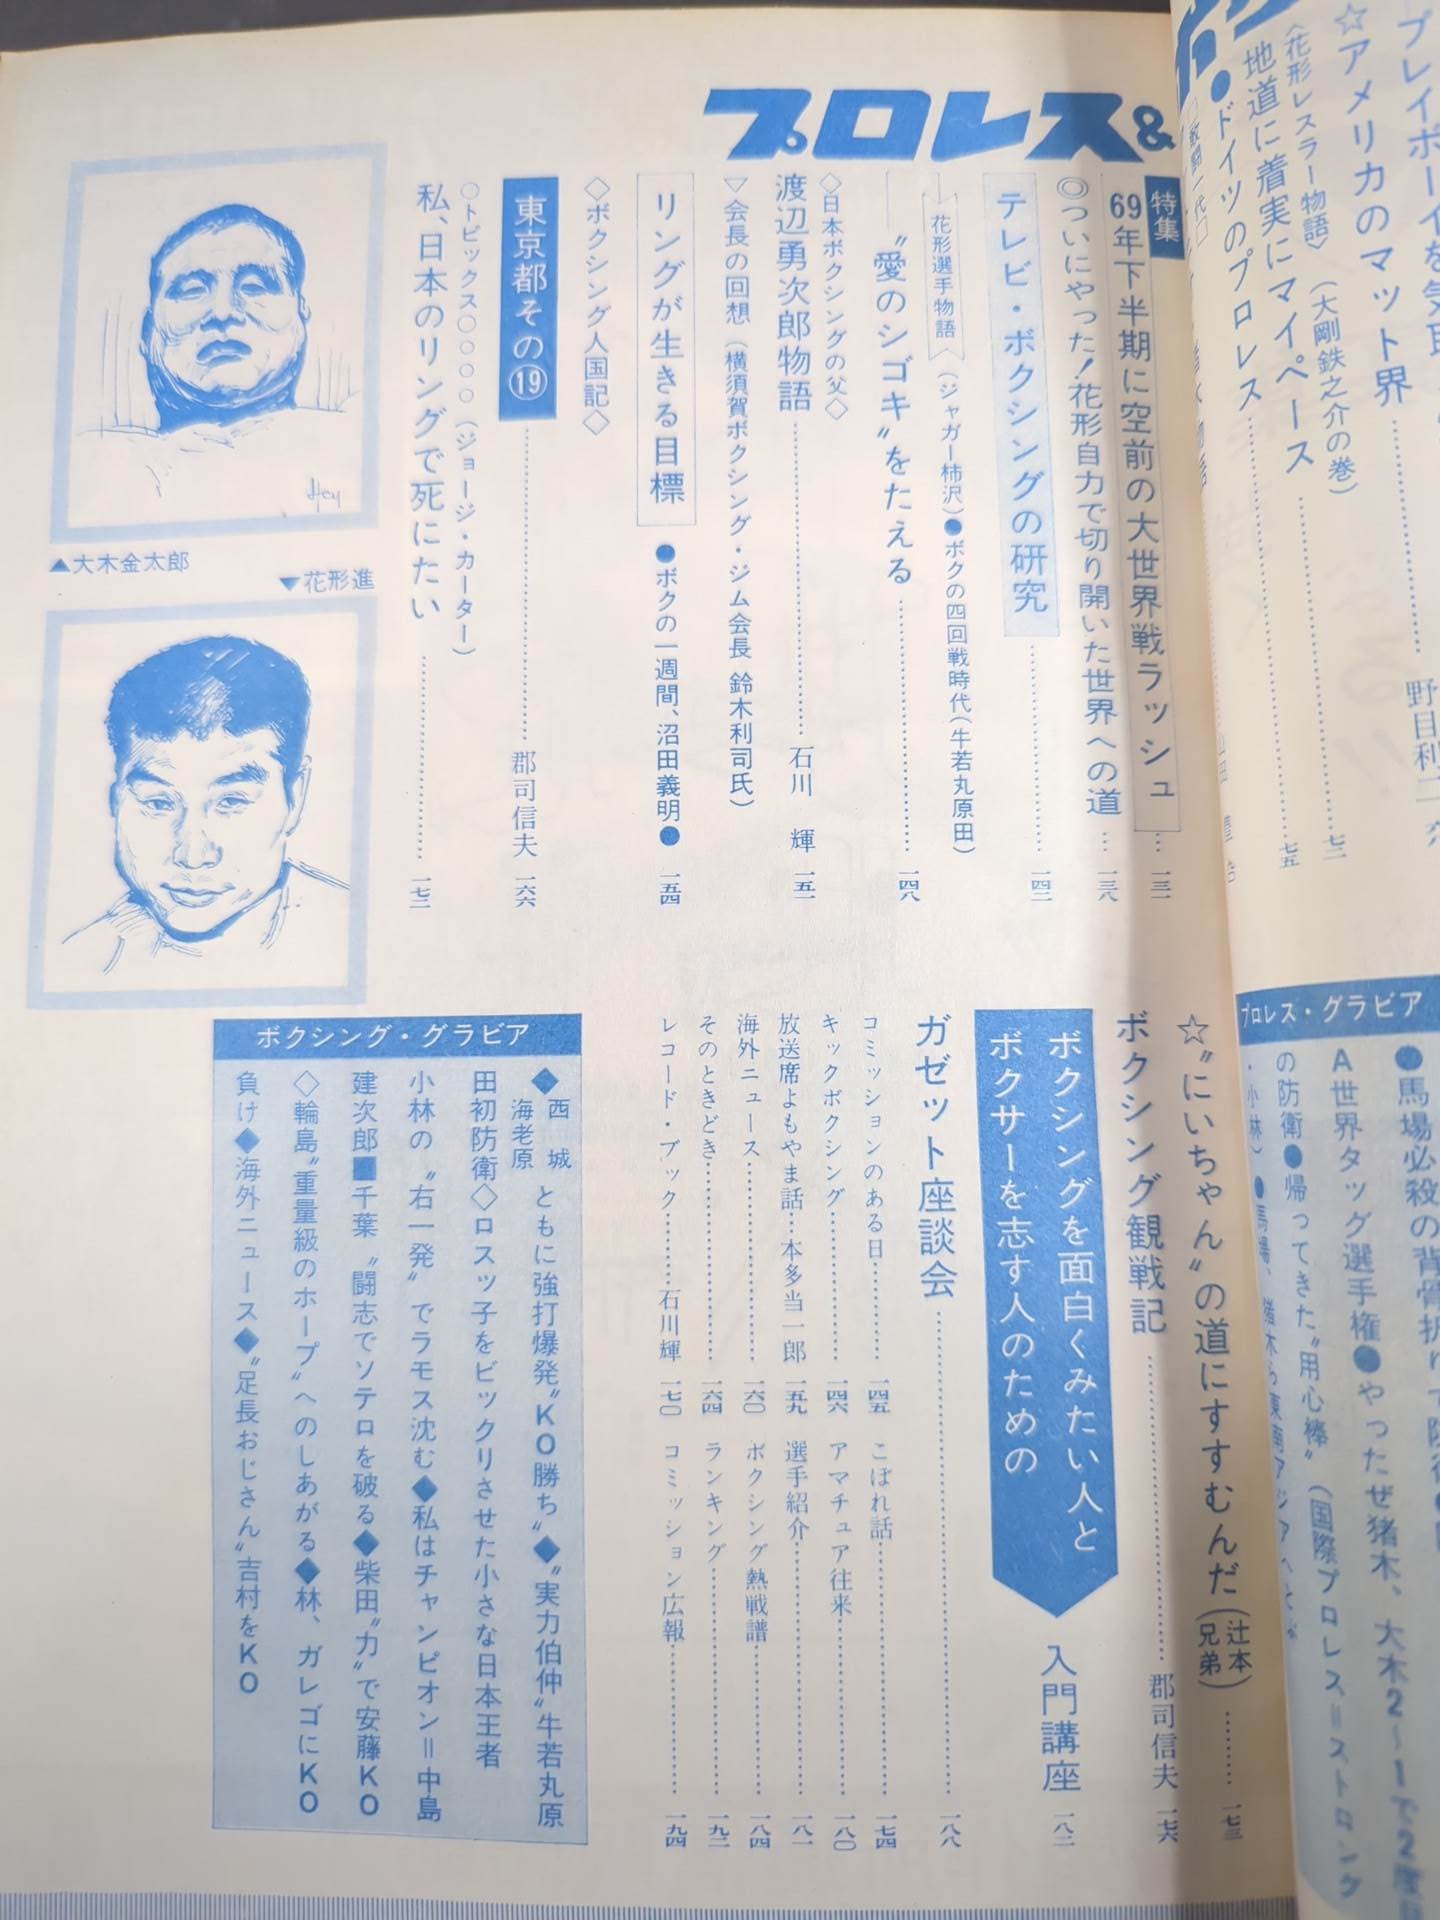 プレイボーイを気取
野目利二
☆アメリカのマット界
〈花形レスラー物語〉(大剛鉄之介の巻)
七二
地道に着実にマイペース
七五
●ドイツのプロレス
プロレス&
特集
69年下半期に空前の大世界戦ラッシュ…一三一
◎ついにやった!花形自力で切り開いた世界への道…一三八
テレビ・ボクシングの研究……一四二
花形選手物語 (ジャガー柿沢)●ボクの四回戦時代(牛若丸原田)
―〝愛のシゴキ〟をたえる……一四八
◇日本ボクシングの父◇
渡辺勇次郎物語……石川 輝 一五一
▽会長の回想(横須賀ボクシング・ジム会長 鈴木利司氏)
リングが生きる目標 ●ボクの一週間、沼田義明● 一五四
◇ボクシング人国記◇
東京都その⑲……郡司信夫 一六六
○トピックス○○○○○(ジョージ・カーター)
私、日本のリングで死にたい……一七二
▲大木金太郎
▼花形進
☆〝にいちゃん〟の道にすすむんだ(辻本兄弟)……一七三
ボクシング観戦記……郡司信夫 一七六
ボクシングを面白くみたい人と
ボクサーを志す人のための
入門講座 一八二
ガゼット座談会……一八八
コミッションのある日……一四五
キックボクシング……一四六
放送席よもやま話…本多当一郎 一五九
海外ニュース……一六〇
そのときどき……一六四
レコード・ブック……石川輝 一七〇
こぼれ話……一七四
アマチュア往来……一八〇
選手紹介……一八一
ボクシング熱戦譜……一八四
ランキング……一九二
コミッション広報……一九四
ボクシング・グラビア
◆西城 海老原 ともに強打爆発〝KO勝ち〟◆〝実力伯仲〟牛若丸原
田初防衛◇ロスッ子をビックリさせた小さな日本王者
小林の〝右一発〟でラモス沈む◆私はチャンピオン=中島
建次郎■千葉〝闘志でソテロを破る◆柴田〝力〟で安藤KO
◇輪島〝重量級のホープ〟へのしあがる◆林、ガレゴにKO
負け◆海外ニュース◆〝足長おじさん〟吉村をKO
プロレス・グラビア
●馬場必殺の背骨折りで防衛●
A世界タッグ選手権●やったぜ猪木、大木2〜1で2度
の防衛●帰ってきた〝用心棒〟(国際プロレス=ストロング
・小林)●馬場、猪木ら東南アジアへ